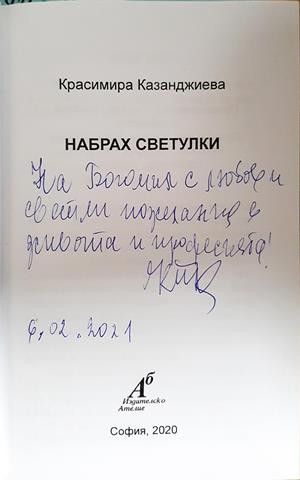 Красимира Казанджиева
НАБРАХ СВЕТУЛКИ
На Богомил с любов и
светли пожелания в
живота и професията!
6.02.2021
Аб
Издателско
Ателие
София, 2020